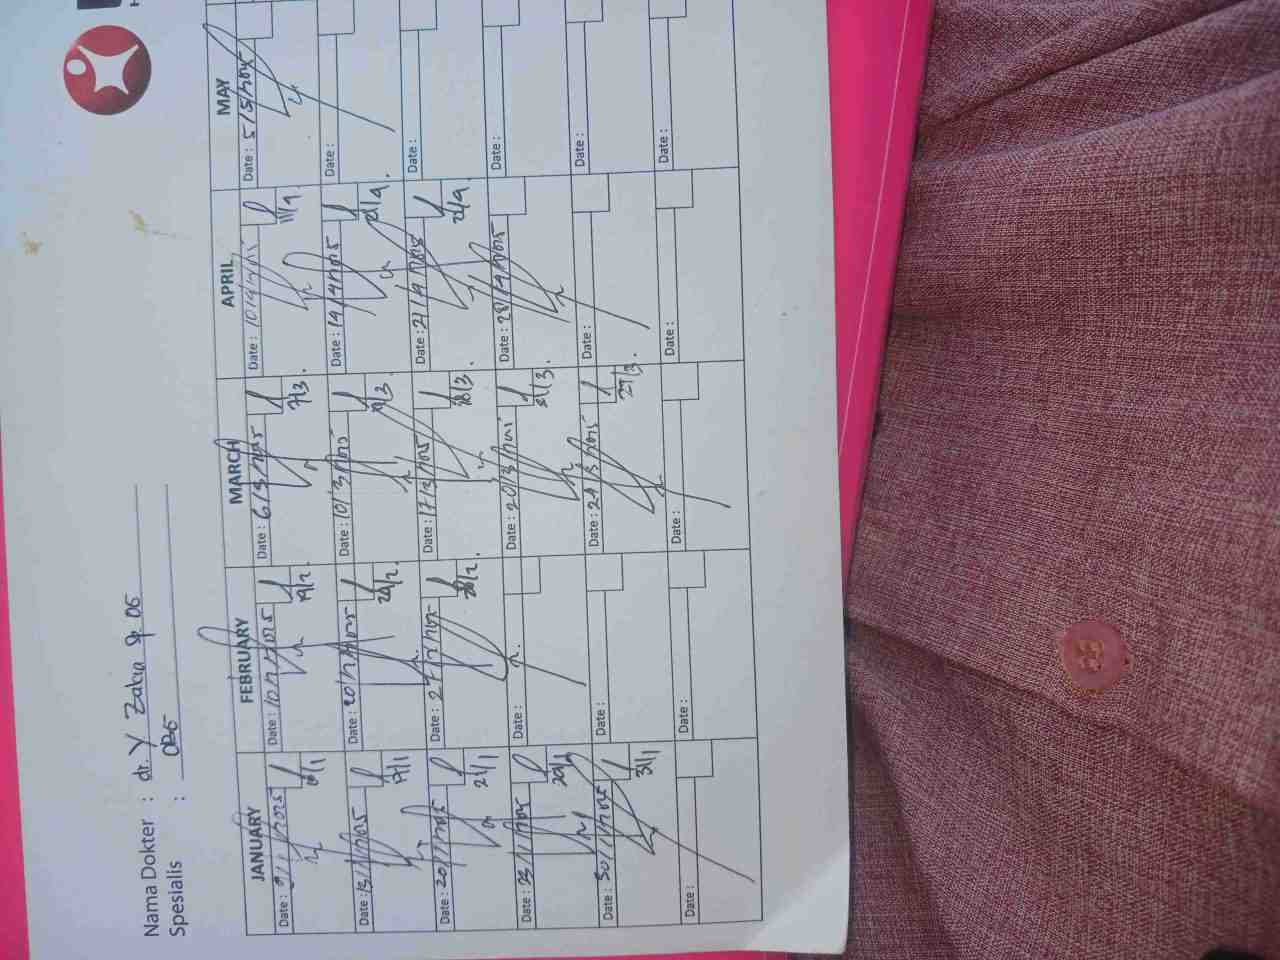 Nama Dokter : dr. Y Zakia Sp OG
Spesialis : OBG
JANUARY FEBRUARY MARCH APRIL MAY
Date : 9/1/2025 Date : 10/2/2025 Date : 6/3/2025 Date : 10/4/2025 Date : 5/5/2025
19/2. 7/3. 11/4.
Date : 13/1/2025 Date : 20/2/2025 Date : 10/3/2025 Date : 14/4/2025 Date :
17/1 24/2. 
Date : 20/1/2025 Date : 27/2/2025 Date : 17/3/2025 Date : 21/4/2025 Date :
21/1 28/2. 18/3.
Date : 23/1/2025 Date : Date : 20/3/2025 Date : 28/4/2025 Date :
21/3.
Date : 30/1/2025 Date : Date : 24/3/2025 Date : Date :
31/1 27/3.
Date : Date : Date : Date : Date :